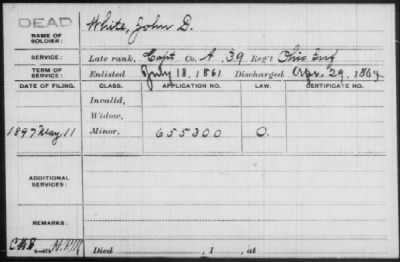 DEAD
NAME OF SOLDIER: White, John D.
SERVICE: Late rank, Capt Co. A, 39 Reg't Ohio Inf
TERM OF SERVICE: Enlisted July 18, 1861 Discharged Apr. 29, 1864
DATE OF FILING. CLASS. APPLICATION NO. LAW. CERTIFICATE NO.
Invalid,
Widow,
1897 May 11 Minor, 655300 O.
ADDITIONAL SERVICES:
REMARKS:
Died , 1 , at